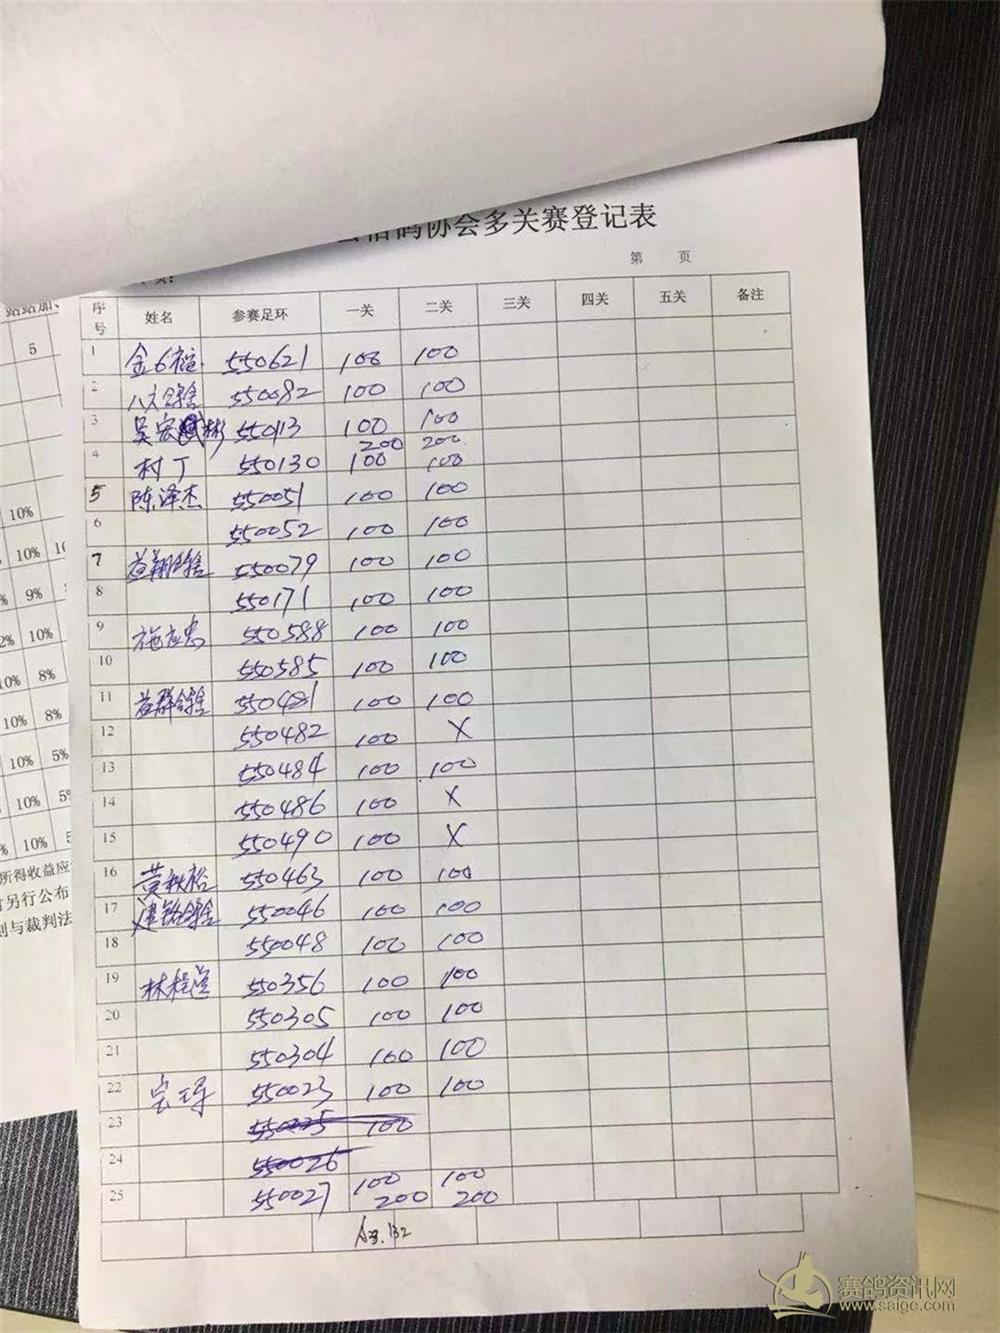 信鸽协会多关赛登记表
第 页
序号 姓名 参赛足环 一关 二关 三关 四关 五关 备注
1 金6福 550621 100 100
2 八六合舍 550082 100 100
3 吴宏彬 550113 100 100
200 200
4 村丁 550130 100 100
5 陈泽杰 550051 100 100
6 550052 100 100
7 益翔合舍 550079 100 100
8 550171 100 100
9 施应忠 550588 100 100
10 550585 100 100
11 益群合舍 550481 100 100
12 550482 100 X
13 550484 100 100
14 550486 100 X
15 550490 100 X
16 黄秋裕 550463 100 100
17 建铭合舍 550046 100 100
18 550048 100 100
19 林程 550356 100 100
20 550305 100 100
21 550304 100 100
22 550023 100 100
23 550025 100
24 550026
25 550027 100 100
200 200
站站加、
5
10%
10% 10
% 9%
2% 10%
10% 8%
10% 8%
10% 5%
10% 5%
% 10% 5
所得收益应
时另行公布
则与裁判法
赛鸽资讯网
www.saige.com